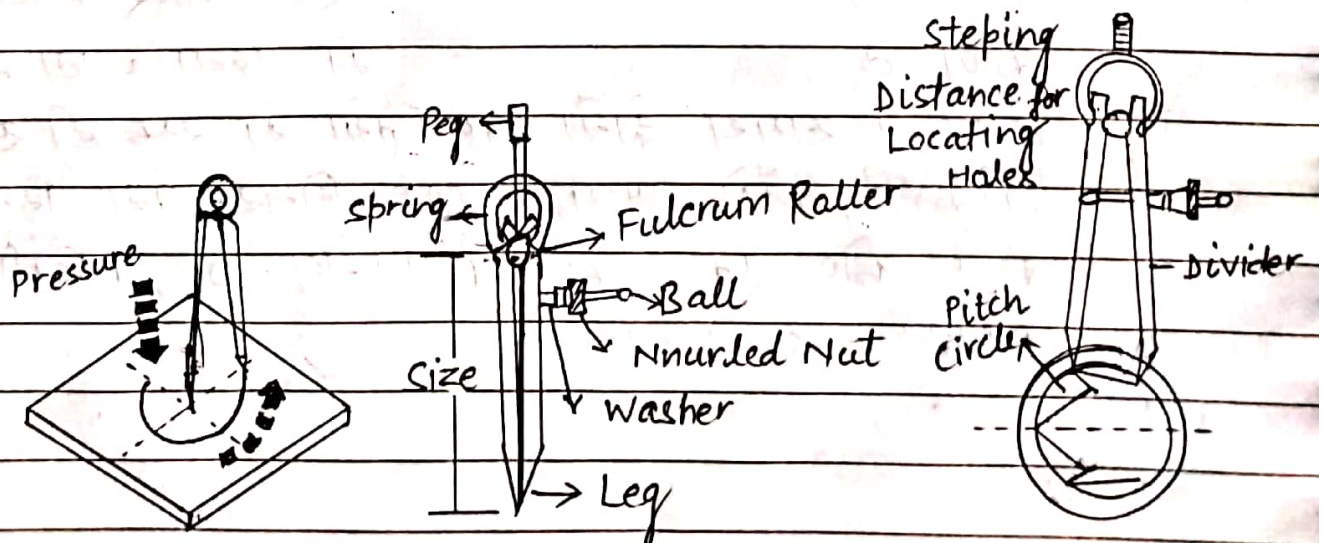 Pressure
Peg
Spring
Fulcrum Raller
Ball
Nnurled Nut
Washer
Size
Leg
Steping
Distance for
Locating
Holes
Divider
Pitch
Circle